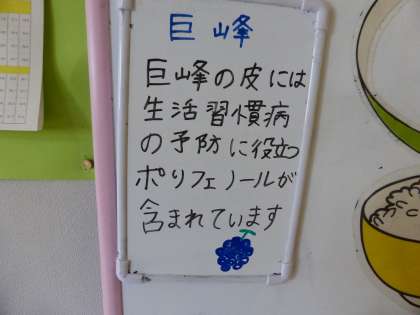 巨峰
巨峰の皮には
生活習慣病
の予防に役立つ
ポリフェノールが
含まれています